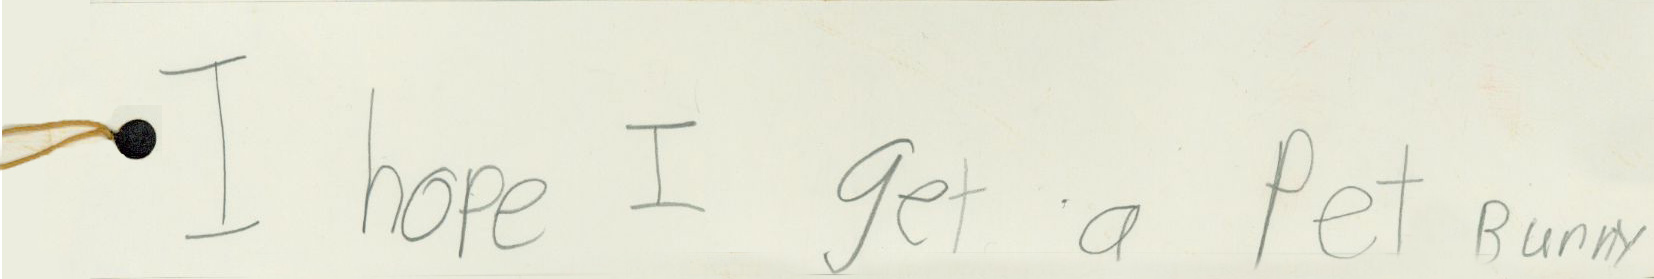 I hope I get a Pet Bunny